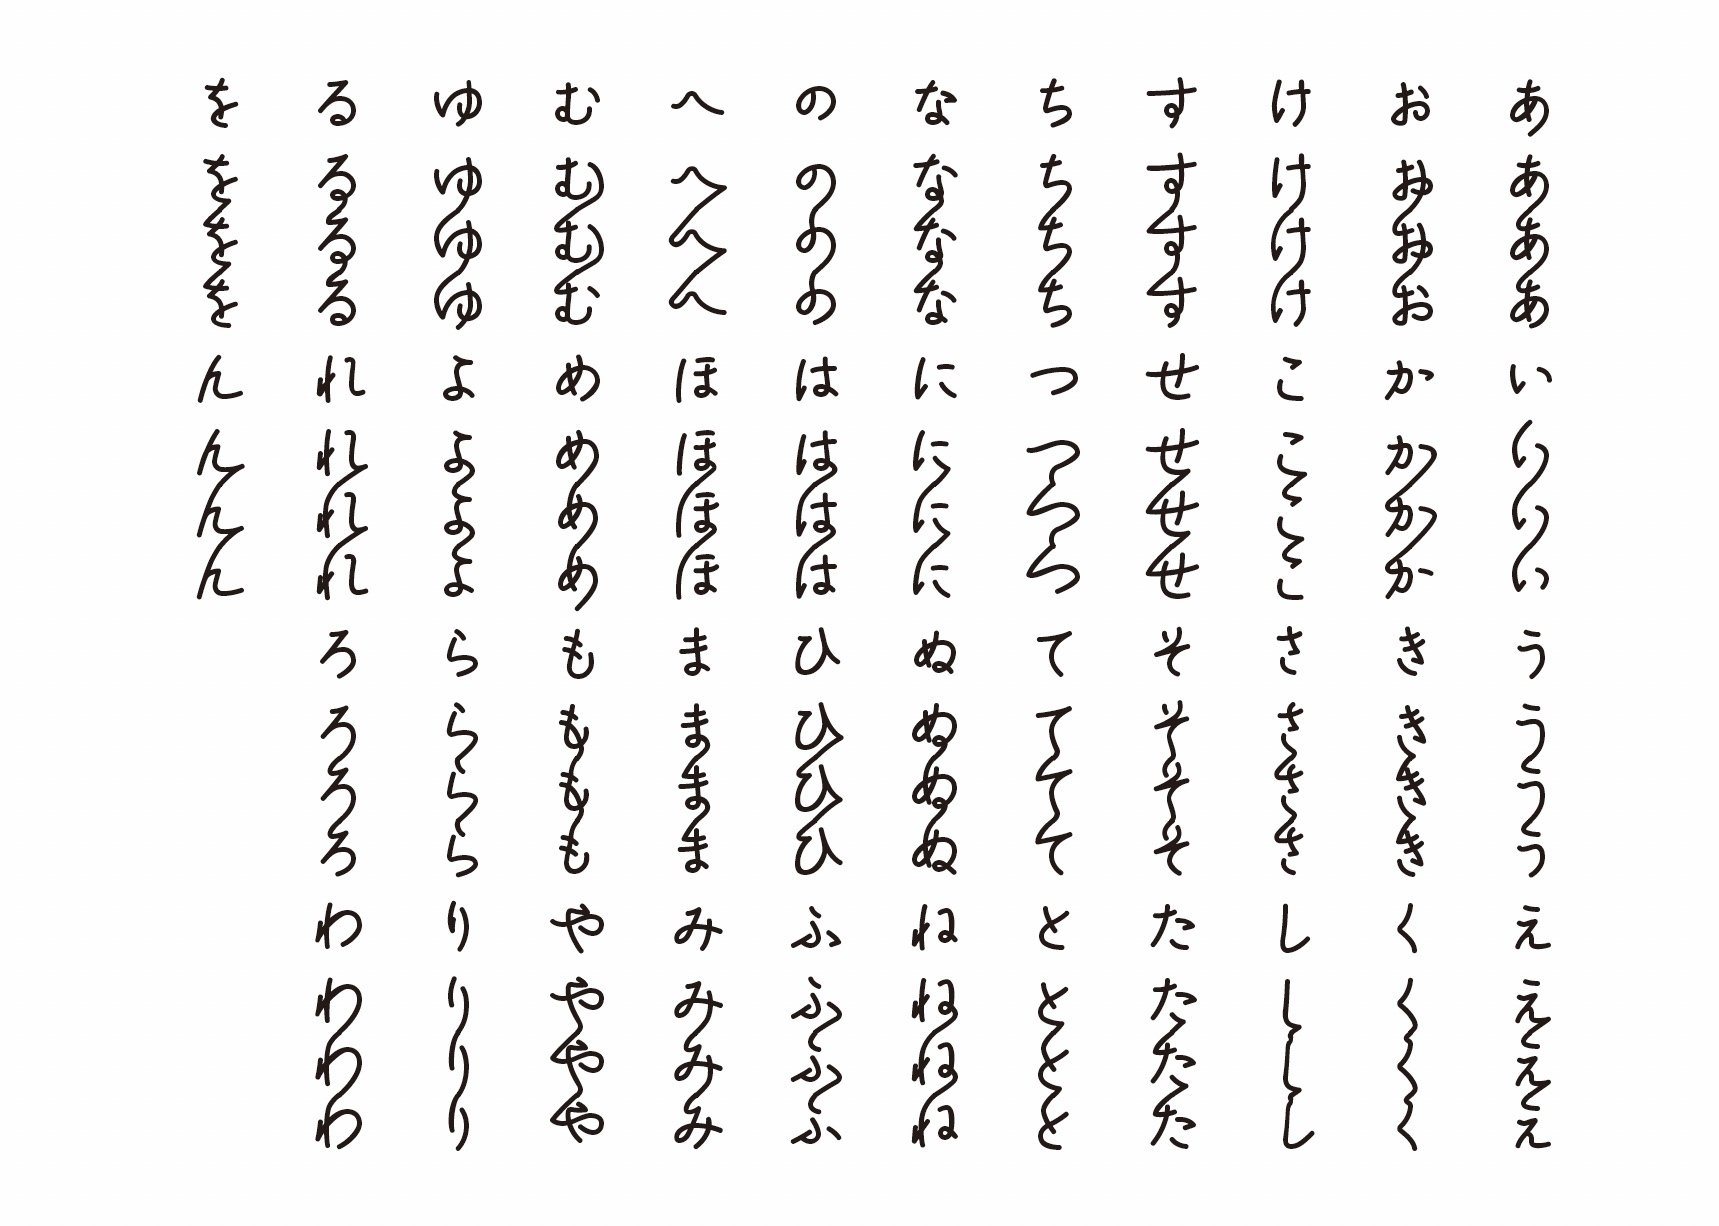 あ
あああ
い
いいい
う
ううう
え
えええ
お
おおお
か
かかか
き
ききき
く
くくく
け
けけけ
こ
こここ
さ
さささ
し
ししし
す
すすす
せ
せせせ
そ
そそそ
た
たたた
ち
ちちち
つ
つつつ
て
ててて
と
ととと
な
ななな
に
ににに
ぬ
ぬぬぬ
ね
ねねね
の
ののの
は
ははは
ひ
ひひひ
ふ
ふふふ
へ
へへへ
ほ
ほほほ
ま
ままま
み
みみみ
む
むむむ
め
めめめ
も
ももも
や
ややや
ゆ
ゆゆゆ
よ
よよよ
ら
ららら
り
りりり
る
るるる
れ
れれれ
ろ
ろろろ
わ
わわわ
を
ををを
ん
んんん